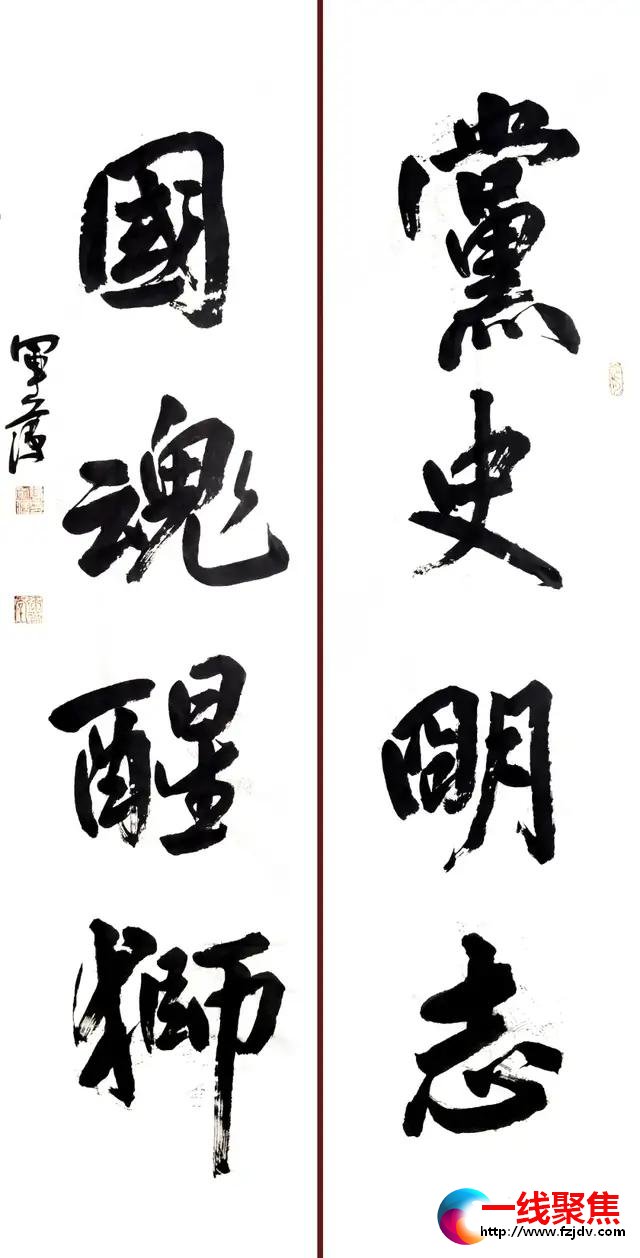 黨史明志
國魂醒獅
一线聚焦
http://www.fzjdv.com